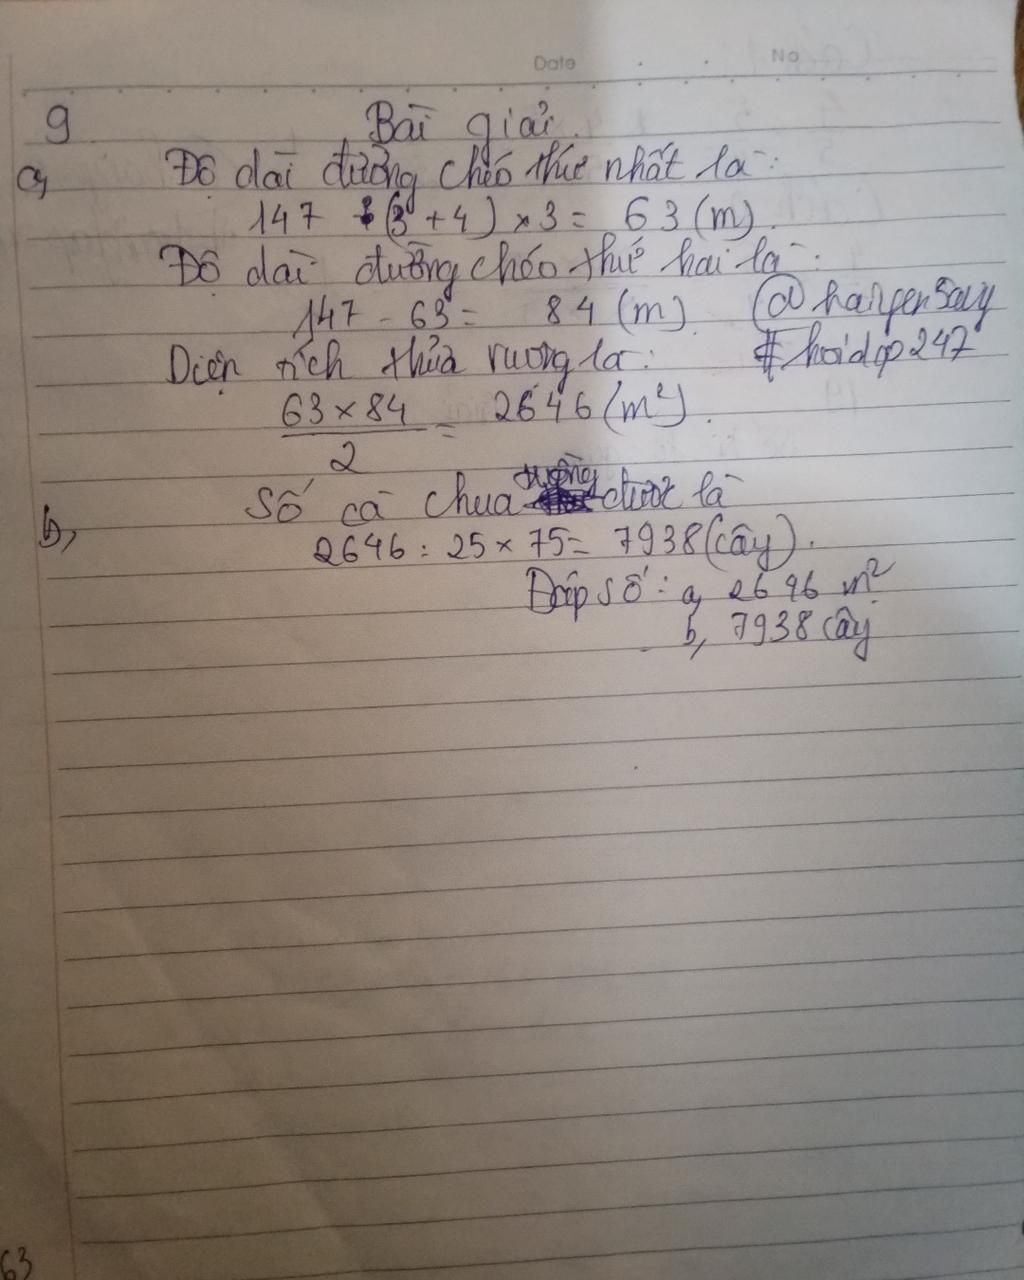 Date No
9 Bài giải.
a, Độ dài đường chéo thứ nhất là:
147 : (3 + 4) × 3 = 63 (m)
Độ dài đường chéo thứ hai là:
147 - 63 = 84 (m) @
Diện tích thửa ruộng là: #hoidap247
63 × 84 = 2646 (m²).
2
b, Số cà chua được là
2646 : 25 × 75 = 7938 (cây).
Đáp số: a, 2646 m²
b, 7938 cây
63